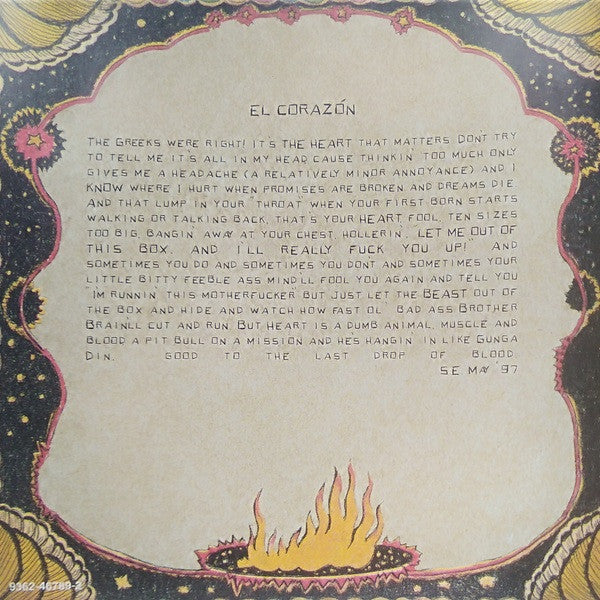 EL CORAZÓN
THE GREEKS WERE RIGHT! IT'S THE HEART THAT MATTERS. DON'T TRY
TO TELL ME IT'S ALL IN MY HEAD CAUSE THINKIN' TOO MUCH ONLY
GIVES ME A HEADACHE (A RELATIVELY MINOR ANNOYANCE) AND I
KNOW WHERE I HURT WHEN PROMISES ARE BROKEN AND DREAMS DIE.
AND THAT LUMP IN YOUR "THROAT" WHEN YOUR FIRST BORN STARTS
WALKING OR TALKING BACK, THAT'S YOUR HEART, FOOL, TEN SIZES
TOO BIG, BANGIN' AWAY AT YOUR CHEST, HOLLERIN', "LET ME OUT OF
THIS BOX, AND I'LL REALLY FUCK YOU UP!" AND
SOMETIMES YOU DO AND SOMETIMES YOU DON'T AND SOMETIMES YOUR
LITTLE BITTY FEEBLE ASS MIND'LL FOOL YOU AGAIN AND TELL YOU
"I'M RUNNIN' THIS MOTHERFUCKER" BUT JUST LET THE BEAST OUT OF
THE BOX AND HIDE AND WATCH HOW FAST OL' BAD ASS BROTHER
BRAIN'LL CUT AND RUN. BUT HEART IS A DUMB ANIMAL, MUSCLE AND
BLOOD, A PIT BULL ON A MISSION AND HE'S HANGIN' IN LIKE GUNGA
DIN. GOOD TO THE LAST DROP OF BLOOD.
S.E. MAY '97
9362-46789-2